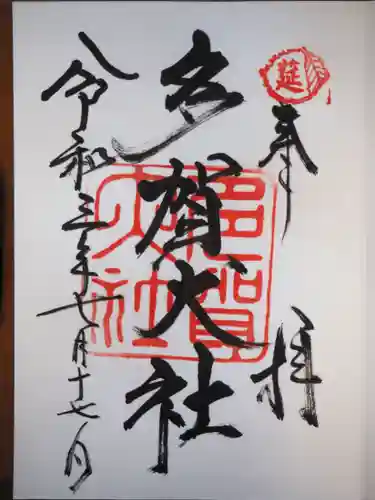 奉拝
多賀大社
多賀大社
令和三年七月十七日